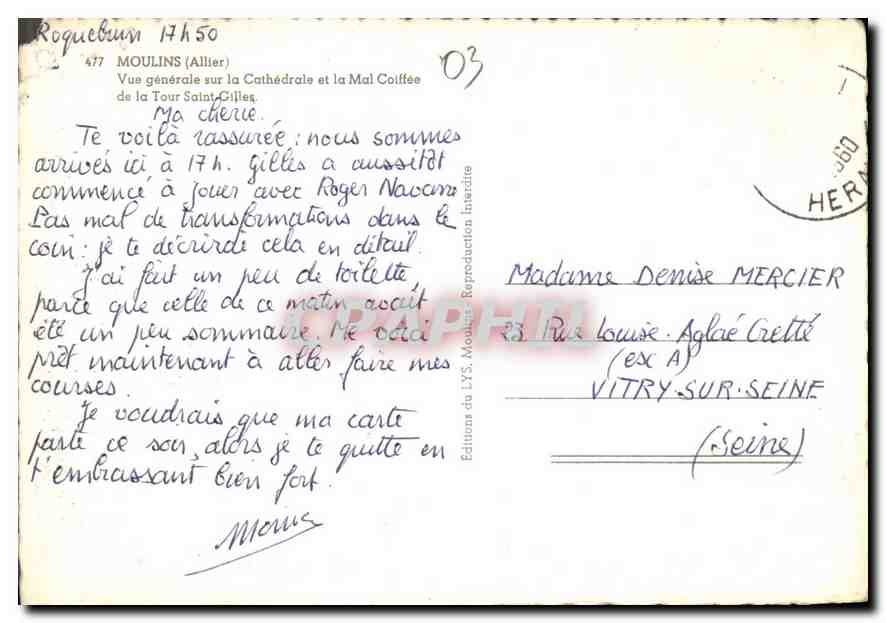 Roquebrun 17h50
03
477 MOULINS (Allier)
Vue générale sur la Cathédrale et la Mal Coiffée
de la Tour Saint-Gilles.
Ma chérie.
Te voilà rassurée : nous sommes
arrivés ici à 17h. Gilles a aussitôt
commencé à jouer avec Roger Navarro
Pas mal de transformations dans le
coin : je te décrirai cela en détail.
J'ai fait un peu de toilette,
parce que celle de ce matin avait
été un peu sommaire. Me voici
prêt maintenant à aller faire mes
courses.
Je voudrais que ma carte
parte ce soir, alors je te quitte en
t'embrassant bien fort.
Editions du LYS, Moulins - Reproduction Interdite
960
HERA
Madame Denise MERCIER
23 Rue Louise-Aglaé Cretté
(esc A)
VITRY-SUR-SEINE
(Seine)
CPAPHIL